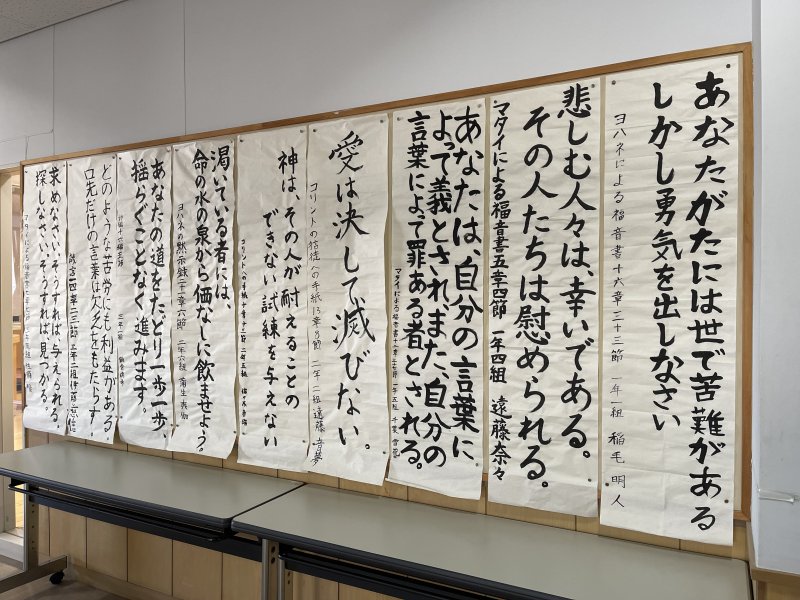 あなたがたには世で苦難がある
しかし勇気を出しなさい
ヨハネによる福音書十六章三十三節 一年一組 稲毛明人
悲しむ人々は、幸いである。
その人たちは慰められる。
マタイによる福音書五章四節 一年四組 遠藤奈々
あなたは、自分の言葉に
よって義とされ、また、自分の
言葉によって罪ある者とされる。
マタイによる福音書十二章三十七節 一年五組 千葉
愛は決して滅びない。
コリントの信徒への手紙13章8節 二年二組 遠藤音夢
神は、その人が耐えることの
できない試練を与えない
コリントへの手紙十章十三節 二年五組
渇いている者には、
命の水の泉から価なしに飲ませよう。
ヨハネの黙示録二十一章六節 二年六組
あなたの道をたどり一歩一歩、
揺らぐことなく進みます。
詩編十七編五節 三年一組
どのような苦労にも利益がある
口先だけの言葉は欠乏をもたらす。
箴言一四章二三節 三年二組 伊藤
求めなさい、そうすれば、与えられる。
探しなさい、そうすれば、見つかる。
マタイによる福音書七章七節